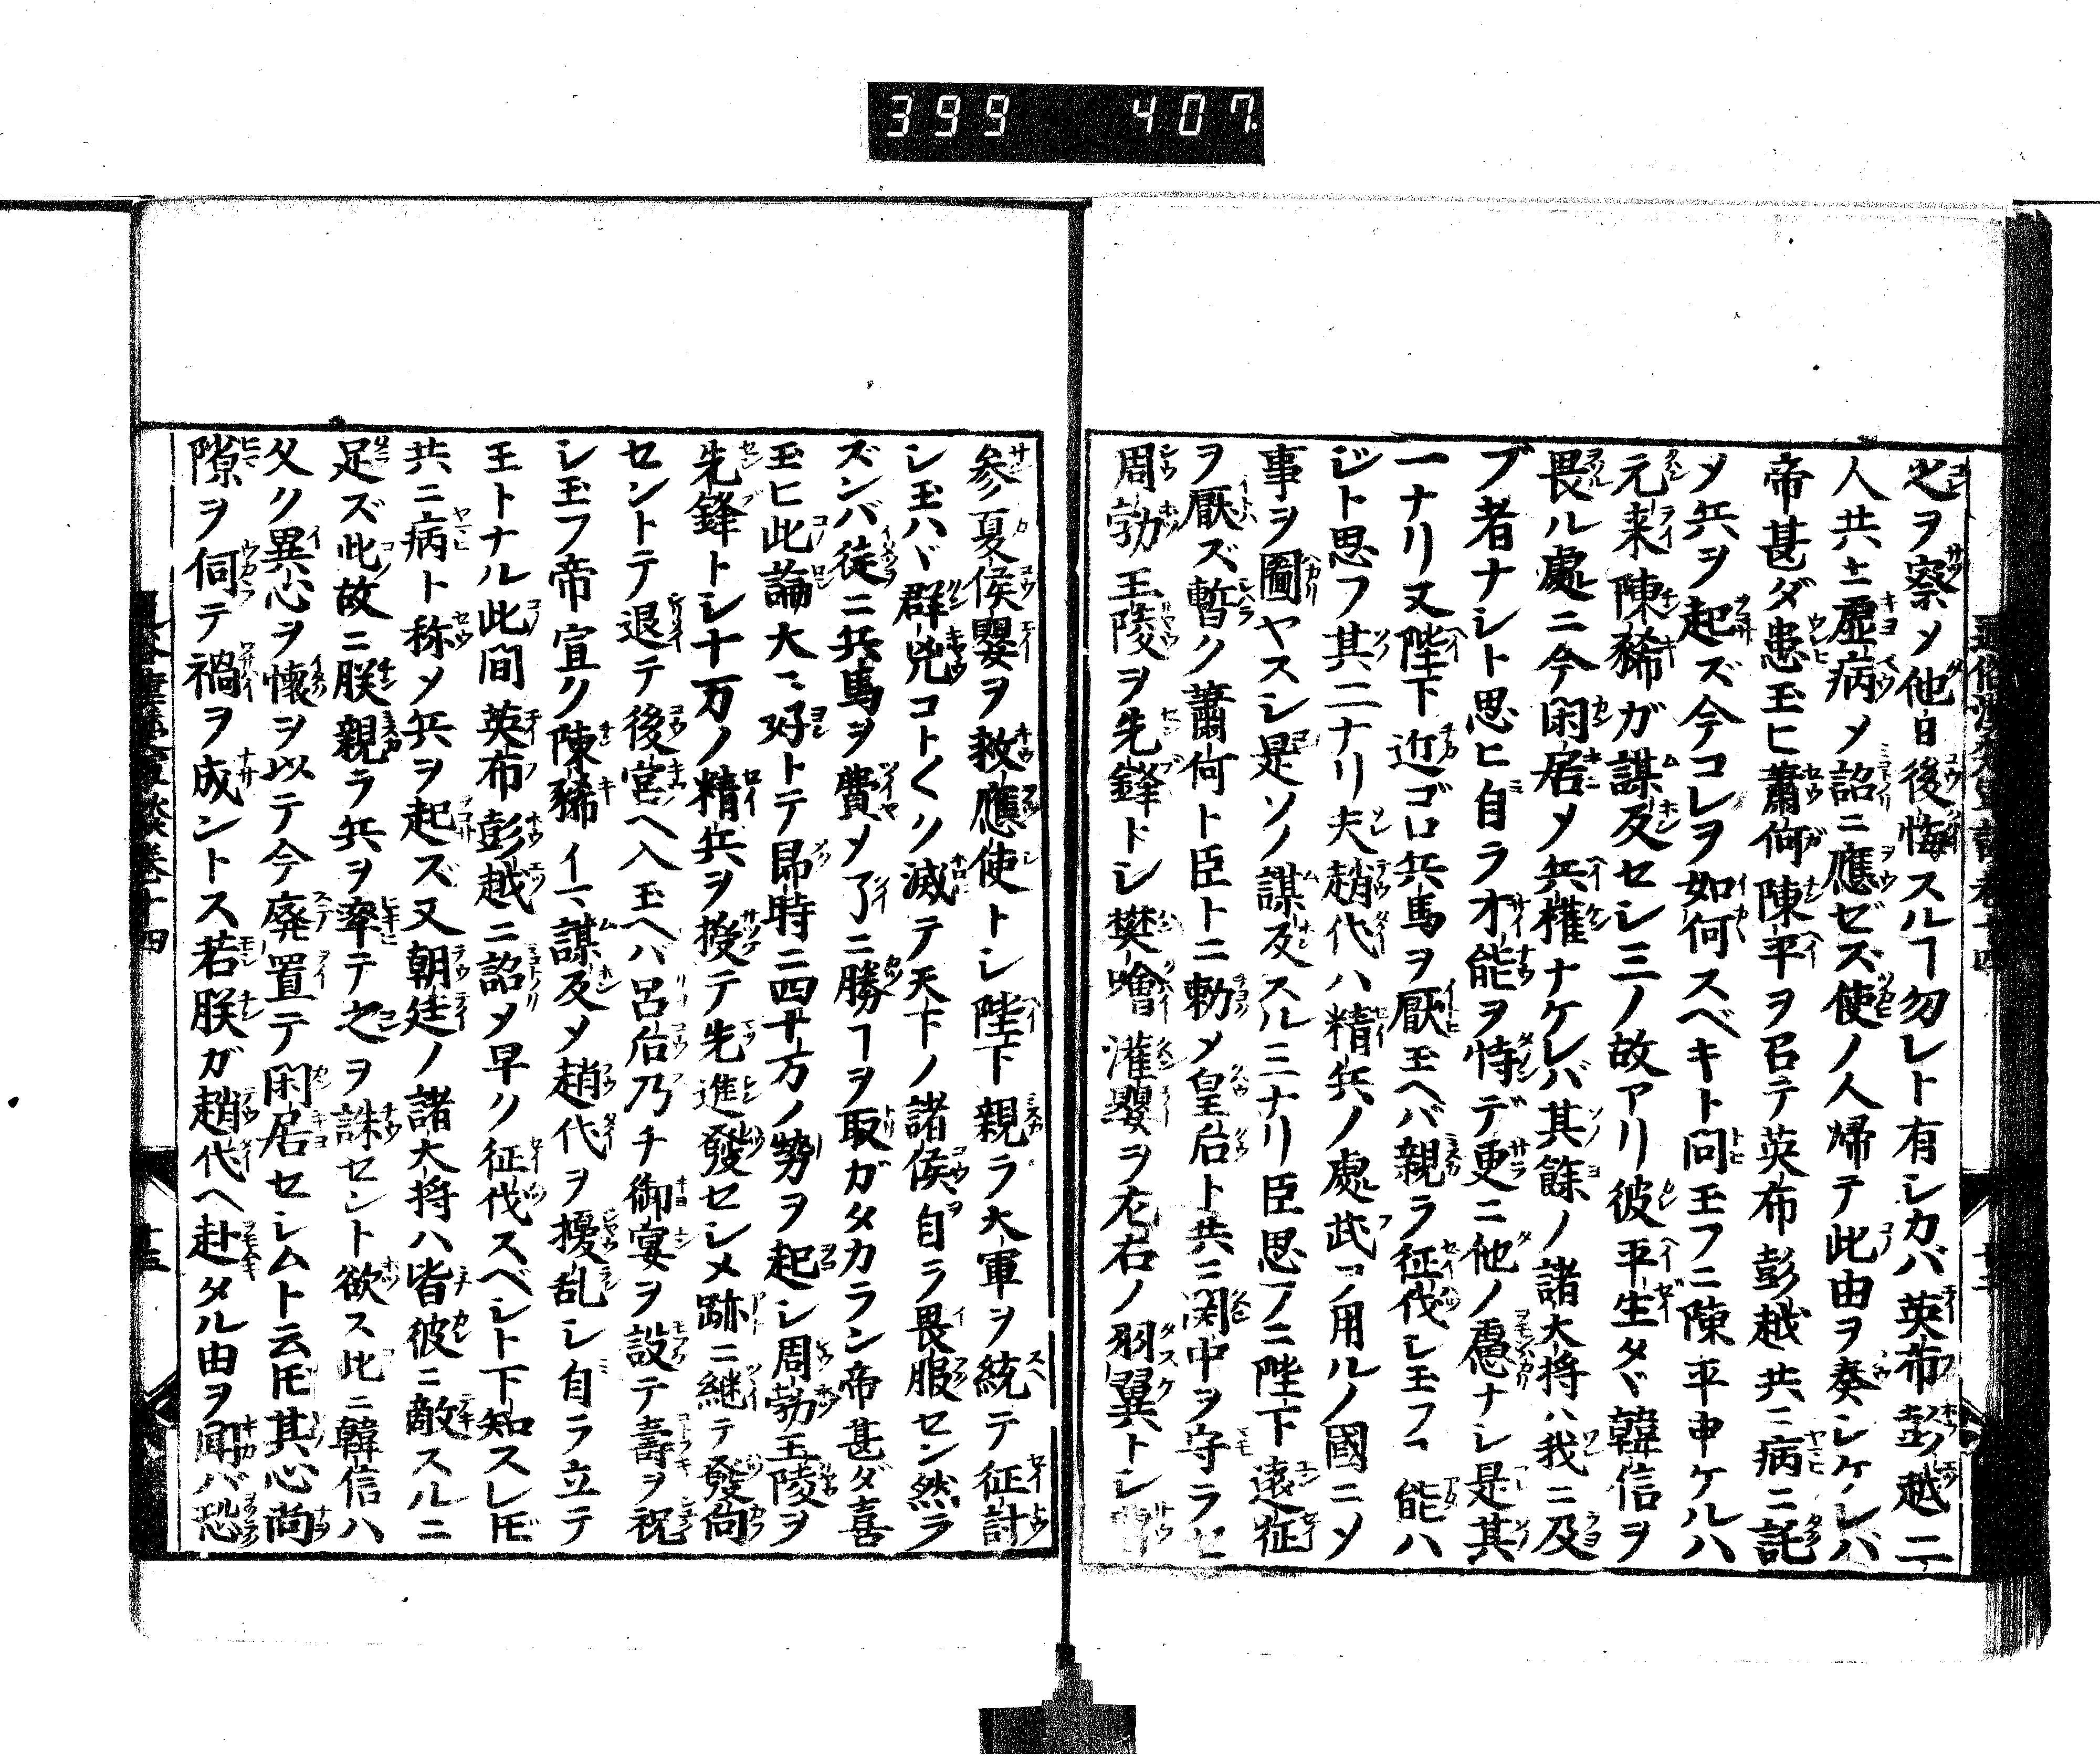 399 407
之ヲ察メ他日後悔スルヿ勿レト有シカバ英布彭越二
人共ニ虚病メ詔ニ應ゼズ使ノ人帰テ此由ヲ奏シケレハ
帝甚ダ患玉ヒ蕭何陳平ヲ召テ英布彭越共ニ病ニ託
メ兵ヲ起ズ今コレヲ如何スベキト問玉フニ陳平申ケルハ
元来陳豨ガ謀反セシ三ノ故アリ彼平生タヾ韓信ヲ
畏ル處ニ今閑居メ兵権ナケレバ其餘ノ諸大将ハ我ニ及
ブ者ナシト思ヒ自ラオ能ヲ恃デ更ニ他ノ慮ナシ是其
一ナリ又陛下近ゴロ兵馬ヲ厭玉ヘバ親ラ征伐シ玉フヿ能ハ
ジト思フ其二ナリ夫趙代ハ精兵ノ處武ヲ用ルノ國ニメ
事ヲ圖ヤスシ是ソノ謀反スル三ナリ臣思フニ陛下遠征
ヲ厭ズ暫ク蕭何ト臣トニ勅メ皇后ト共ニ関中ヲ守ラセ
周勃王陵ヲ先鋒トシ樊噲灌嬰ヲ左右ノ羽翼トシ曹
参夏侯嬰ヲ救應使トシ陛下親ラ大軍ヲ統テ征討
シ玉ハヾ群兇コト〱ク滅テ天下ノ諸侯自ラ畏服セン然ラ
ズンバ徒ニ兵馬ヲ費メ了ニ勝ヿヲ取ガタカラン帝甚ダ喜
玉ヒ此論大ニ好トテ即時ニ四十万ノ勢ヲ起シ周勃王陵ヲ
先鋒トシ十万ノ精兵ヲ授テ先進發セシメ跡ニ継テ發向
セントテ退テ後宮ヘ入玉ヘバ呂后乃チ御宴ヲ設テ壽ヲ祝
シ玉フ帝宣ク陳豨イマ謀反メ趙代ヲ擾乱シ自ラ立テ
王トナル此間英布彭越ニ詔メ早ク征伐スベシト下知スレ𪜈
共ニ病ト称メ兵ヲ起ズ又朝廷ノ諸大将ハ皆彼ニ敵スルニ
足ズ此故ニ朕親ラ兵ヲ率テ之ヲ誅セント欲ス此ニ韓信ハ
久ク異心ヲ懐ヲ以テ今廃置テ閑居セシムト云𪜈其心尚
隙ヲ伺テ禍ヲ成ントス若朕ガ趙代ヘ赴タル由ヲ聞バ恐